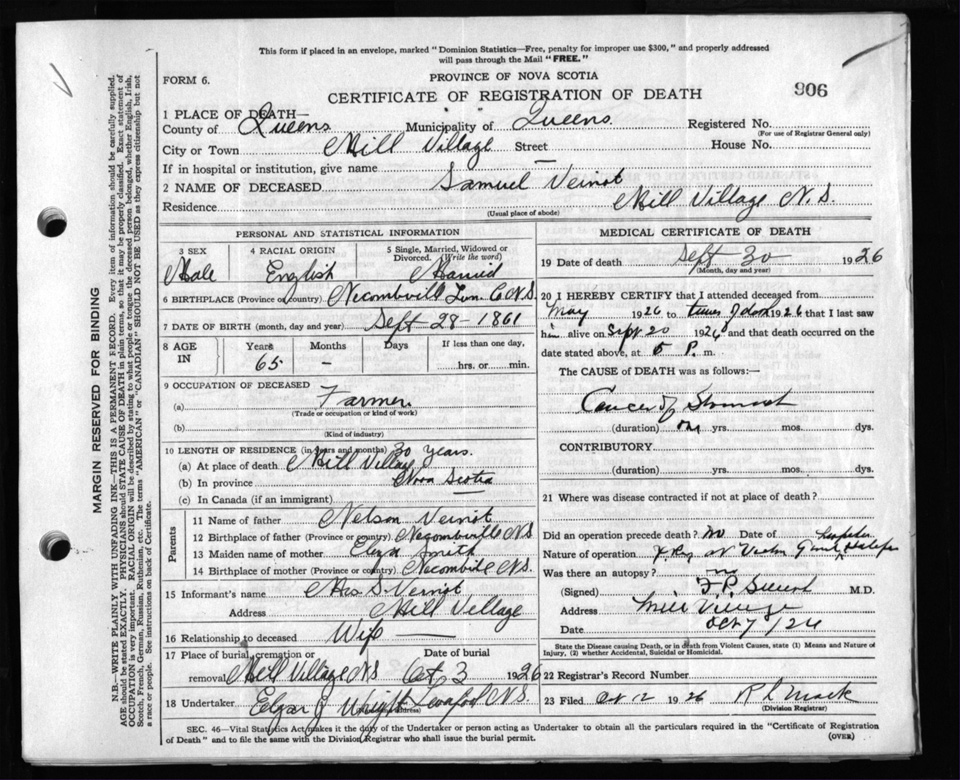 This form if placed in an envelope, marked "Dominion Statistics—Free, penalty for improper use $300," and properly addressed
will pass through the Mail "FREE."
FORM 6.
PROVINCE OF NOVA SCOTIA
CERTIFICATE OF REGISTRATION OF DEATH
906
1 PLACE OF DEATH—
County of Queens Municipality of Queens Registered No.
(For use of Registrar General only)
City or Town Mill Village Street — House No.
If in hospital or institution, give name
2 NAME OF DECEASED Samuel Veinot
Residence Mill Village N.S.
(Usual place of abode)
PERSONAL AND STATISTICAL INFORMATION
3 SEX Male
4 RACIAL ORIGIN English
5 Single, Married, Widowed or Divorced. (Write the word) Married
6 BIRTHPLACE (Province or country) Necombvill Lun. Co N.S.
7 DATE OF BIRTH (month, day and year) Sept 28 - 1861
8 AGE IN Years 65 Months - Days If less than one day, hrs. or min.
9 OCCUPATION OF DECEASED
(a) Farmer
(Trade or occupation or kind of work)
(b)
(Kind of industry)
10 LENGTH OF RESIDENCE (in years and months) 30 years.
(a) At place of death Mill Village
(b) In province Nova Scotia
(c) In Canada (if an immigrant)
Parents
11 Name of father Nelson Veinot
12 Birthplace of father (Province or country) Necombville N.S.
13 Maiden name of mother Eliza Smith
14 Birthplace of mother (Province or country) Necombville N.S.
15 Informant's name Mrs S. Veinot
Address Mill Village
16 Relationship to deceased Wife
17 Place of burial, cremation or removal Mill Village N S Date of burial Oct 3 1926
18 Undertaker Elgar J Wright N.S.
(Address)
MEDICAL CERTIFICATE OF DEATH
19 Date of death Sept 30 1926
(Month, day and year)
20 I HEREBY CERTIFY that I attended deceased from
May 1926 to time of death 1926 that I last saw
him alive on Sept 20 1926 and that death occurred on the
date stated above, at 5 P. m.
The CAUSE of DEATH was as follows:—
Cancer of Stomach
(duration) one yrs. mos. dys.
CONTRIBUTORY.
(duration) yrs. mos. dys.
21 Where was disease contracted if not at place of death?
Did an operation precede death? no Date of
Nature of operation X Ray Halifax
Was there an autopsy? no
(Signed) M.D.
Address Mill Village
Date Oct 7/26
State the Disease causing Death, or in Death from Violent Causes, state (1) Means and Nature of
Injury, (2) whether Accidental, Suicidal or Homicidal.
22 Registrar's Record Number
23 Filed Oct 12 1926 R L Mack
(Division Registrar)
SEC. 46—Vital Statistics Act, makes it the duty of the Undertaker or person acting as Undertaker to obtain all the particulars required in the "Certificate of Registration
of Death" and to file the same with the Division Registrar who shall issue the burial permit.
(OVER)
MARGIN RESERVED FOR BINDING
N.B.—WRITE PLAINLY WITH UNFADING INK—THIS IS A PERMANENT RECORD. Every item of information should be carefully supplied.
AGE should be stated EXACTLY. PHYSICIANS should STATE CAUSE OF DEATH in plain terms, so that it may be properly classified. Exact statement of
OCCUPATION is very important. RACIAL ORIGIN will be described by stating to what people or tongue the deceased person belonged, whether English, Irish,
Scotch, French, German, Russian, Ruthenian, etc. The terms "AMERICAN" or "CANADIAN" SHOULD NOT BE USED as they express citizenship but not
a race or people. See instructions on back of Certificate.